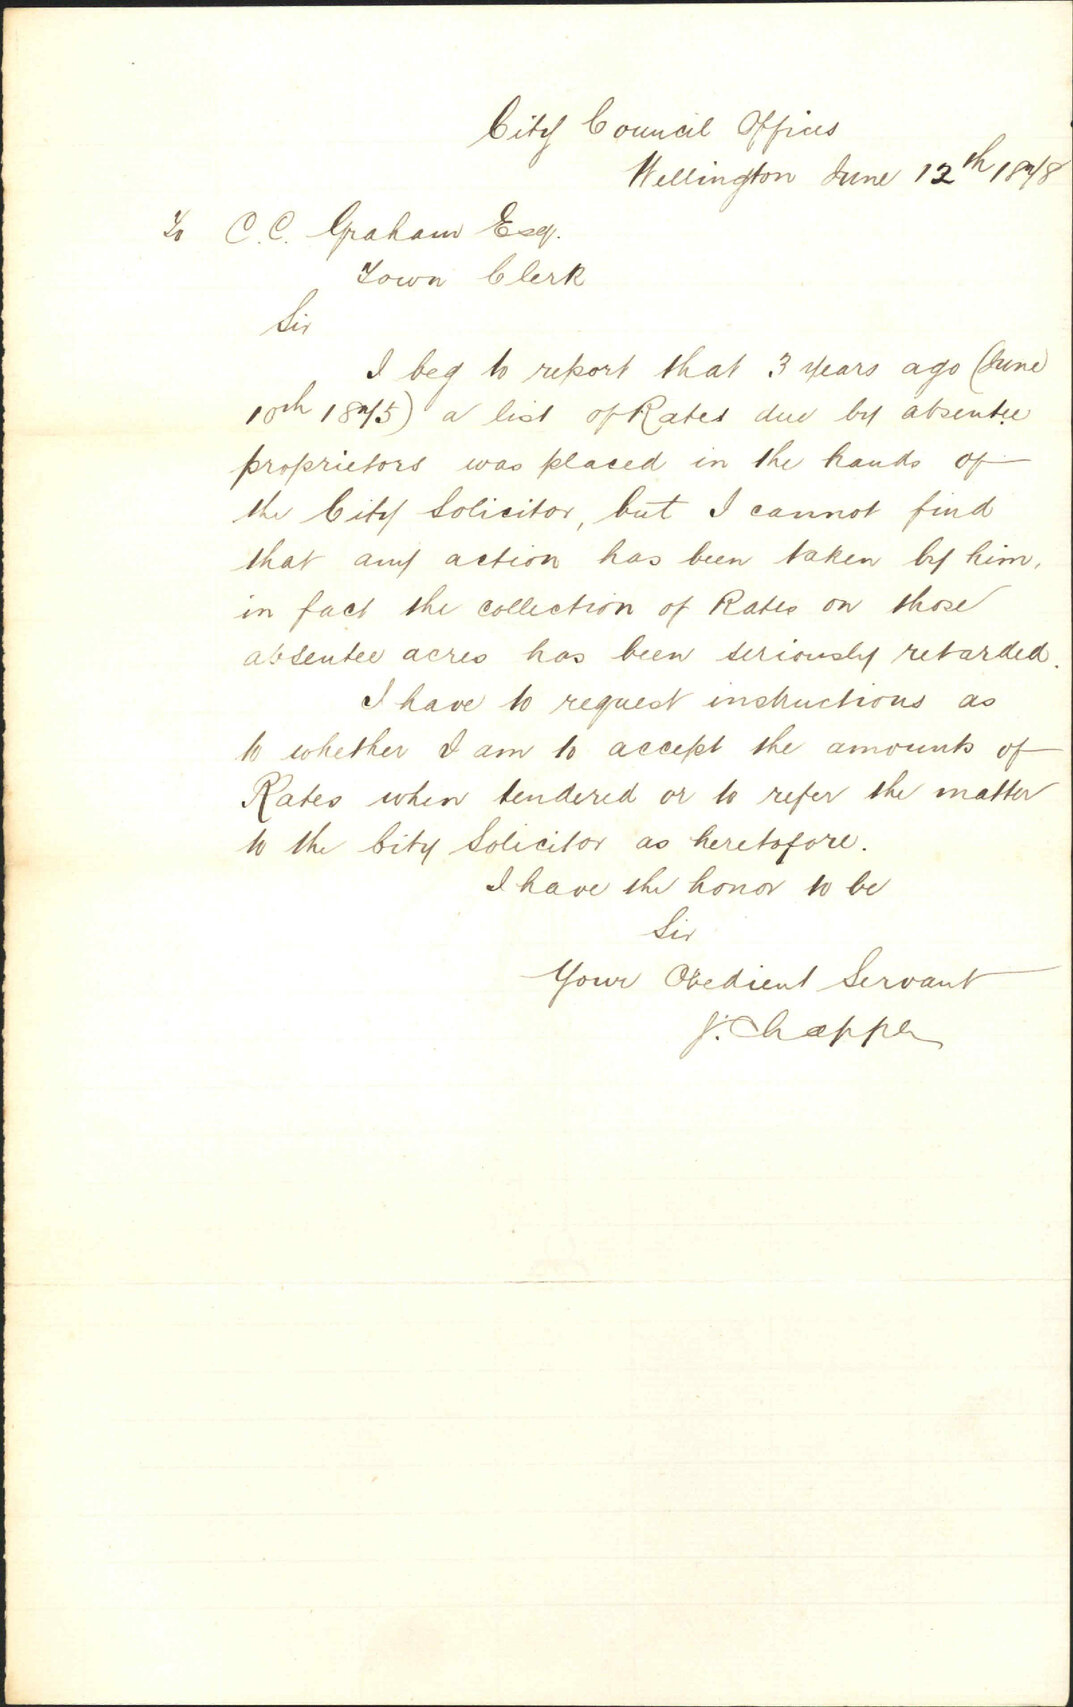 City Council Offices
Wellington June 12th 1878
To C. C. Graham Esq.
Town Clerk
Sir
I beg to report that 3 years ago (June
10th 1875) a list of Rates due by absentee
proprietors was placed in the hands of
the City Solicitor, but I cannot find
that any action has been taken by him,
in fact the collection of Rates on those
absentee acres has been seriously retarded.
I have to request instructions as
to whether I am to accept the amounts of
Rates when tendered or to refer the matter
to the City Solicitor as heretofore.
I have the honor to be
Sir
Your Obedient Servant
J.